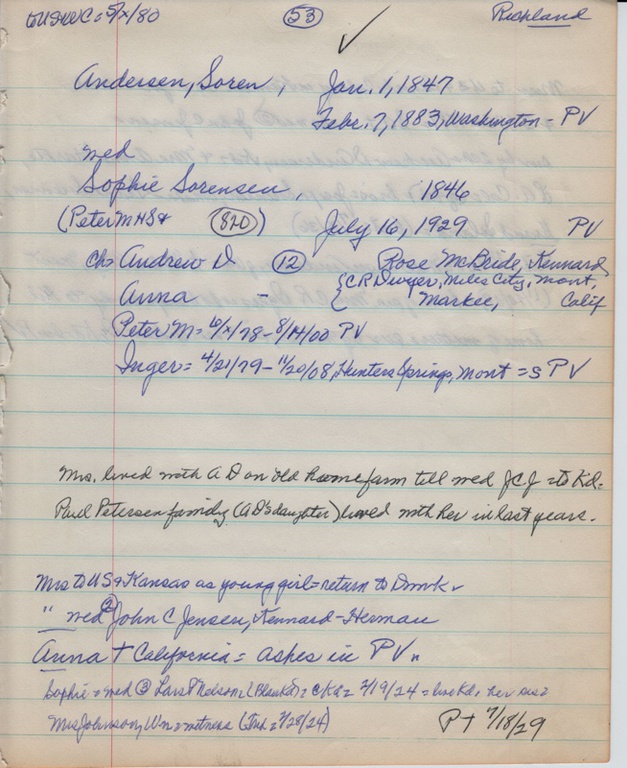 to US WC = 5/x/80 53 Richland
Andersen, Soren, Jan. 1, 1847
Febr. 7, 1883, Washington = PV
wed
Sophie Sorensen, 1846
(Peter M HS & 820) July 16, 1929 PV
ch= Andrew D 12 Rose McBride, Kennard
Anna - { C R Dwyer, Miles City, Mont,
{ Markee, Calif
Peter M = 10/x/78 - 8/14/00 PV
Inger = 4/21/79 - 11/20/08, Hunters Springs, Mont = S PV
Mrs. lived with A D on old home farm till wed J C J = to Kd.
Paul Petersen family (A D's daughter) lived with her in last years.
Mrs to US & Kansas as young girl = return to Dmk.
" wed ② John C Jensen, Kennard - Herman
Anna † California = ashes in PV.
Sophie = wed ③ Lars P Nelson = (Blair Kd) = C Kd = 2/19/24 = live Kd = her sis =
Mrs Johnson, Wn = witness (2/28/24)
P † 7/18/29